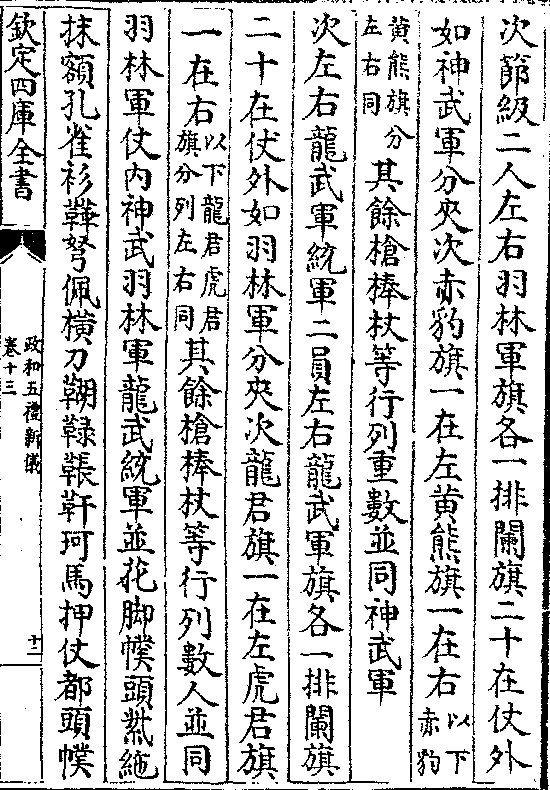 次節級二人左右羽林軍旗各一排闌旗二十在仗外
如神武軍分夾次赤豹旗一在左黄熊旗一在右以下赤豹
黄熊旗分左右同其餘槍棒杖等行列重數並同神武軍
次左右龍武軍統軍二員左右龍武軍旗各一排闌旗
二十在仗外如羽林軍分夾次龍君旗一在左虎君旗
一在右以下龍君虎君旗分列左右同其餘槍棒杖等行列數人並同
羽林軍仗内神武羽林軍龍武統軍並花脚幞頭紫絁
抹額孔雀衫鞾弩佩横刀鞦䩮鞍靬珂馬押仗都頭幞
欽定四庫全書
政和五禮新儀
卷十三
十二